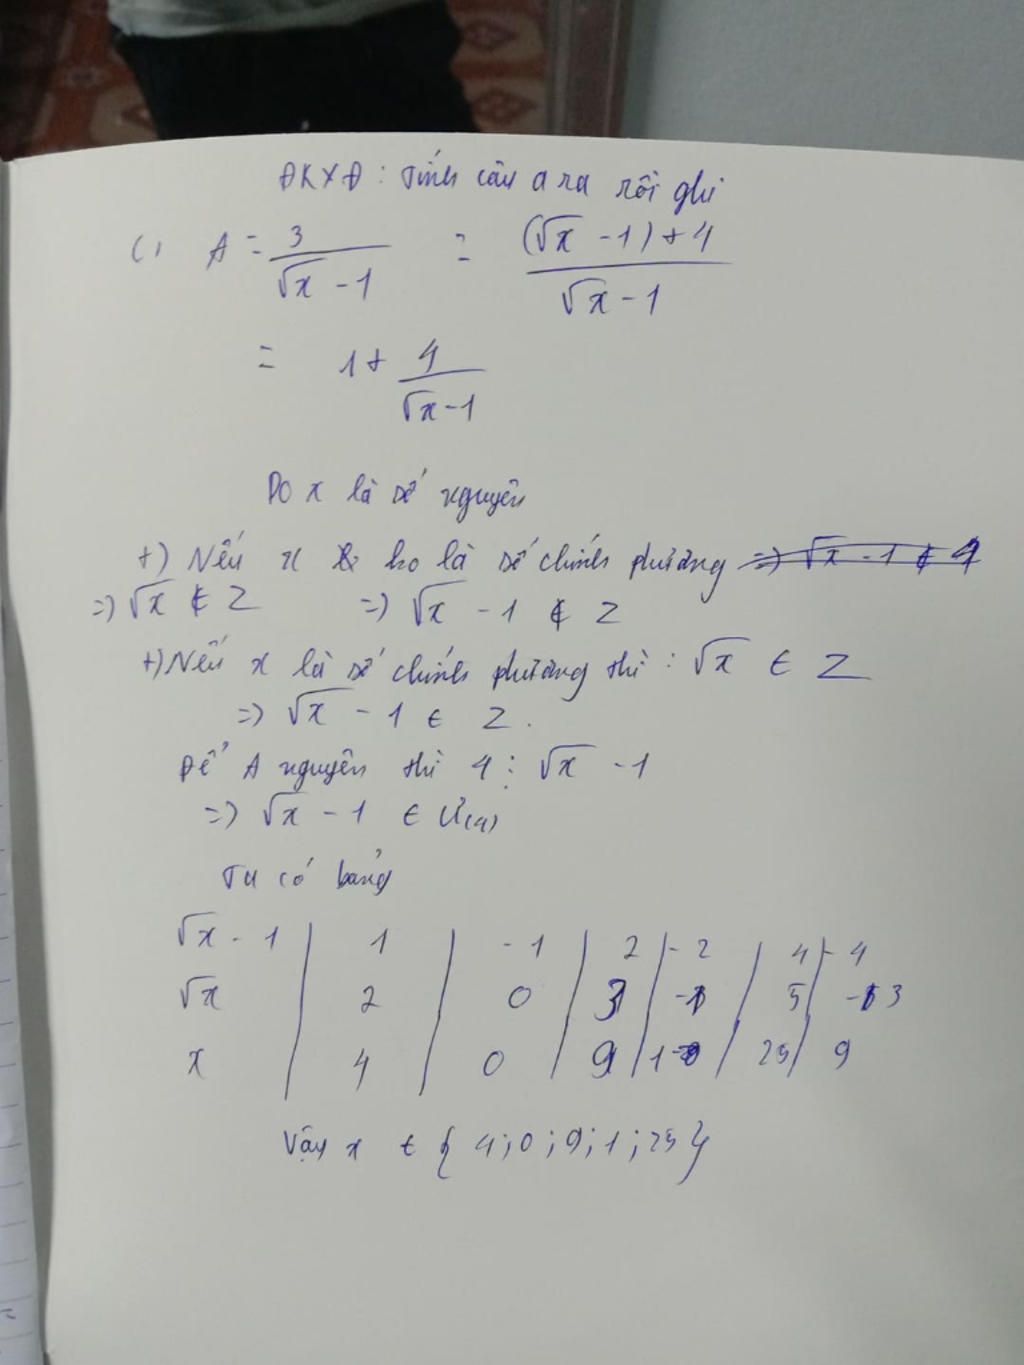 ĐKXĐ: Tính câu a ra rồi ghi
c) A = 3/(√x - 1) = ((√x - 1) + 4)/(√x - 1)
= 1 + 4/(√x - 1)
Do x là số nguyên
+) Nếu x ko là số chính phương => √x - 1 ∉ 4
=> √x ∉ Z => √x - 1 ∉ Z
+) Nếu x là số chính phương thì: √x ∈ Z
=> √x - 1 ∈ Z.
Để A nguyên thì 4 ⋮ √x - 1
=> √x - 1 ∈ Ư(4)
Ta có bảng
√x - 1 | 1 | -1 | 2 | -2 | 4 | -4
√x | 2 | 0 | 3 | -1 | 5 | -3
x | 4 | 0 | 9 | 1 | 25 | 9
Vậy x ∈ {4; 0; 9; 1; 25}